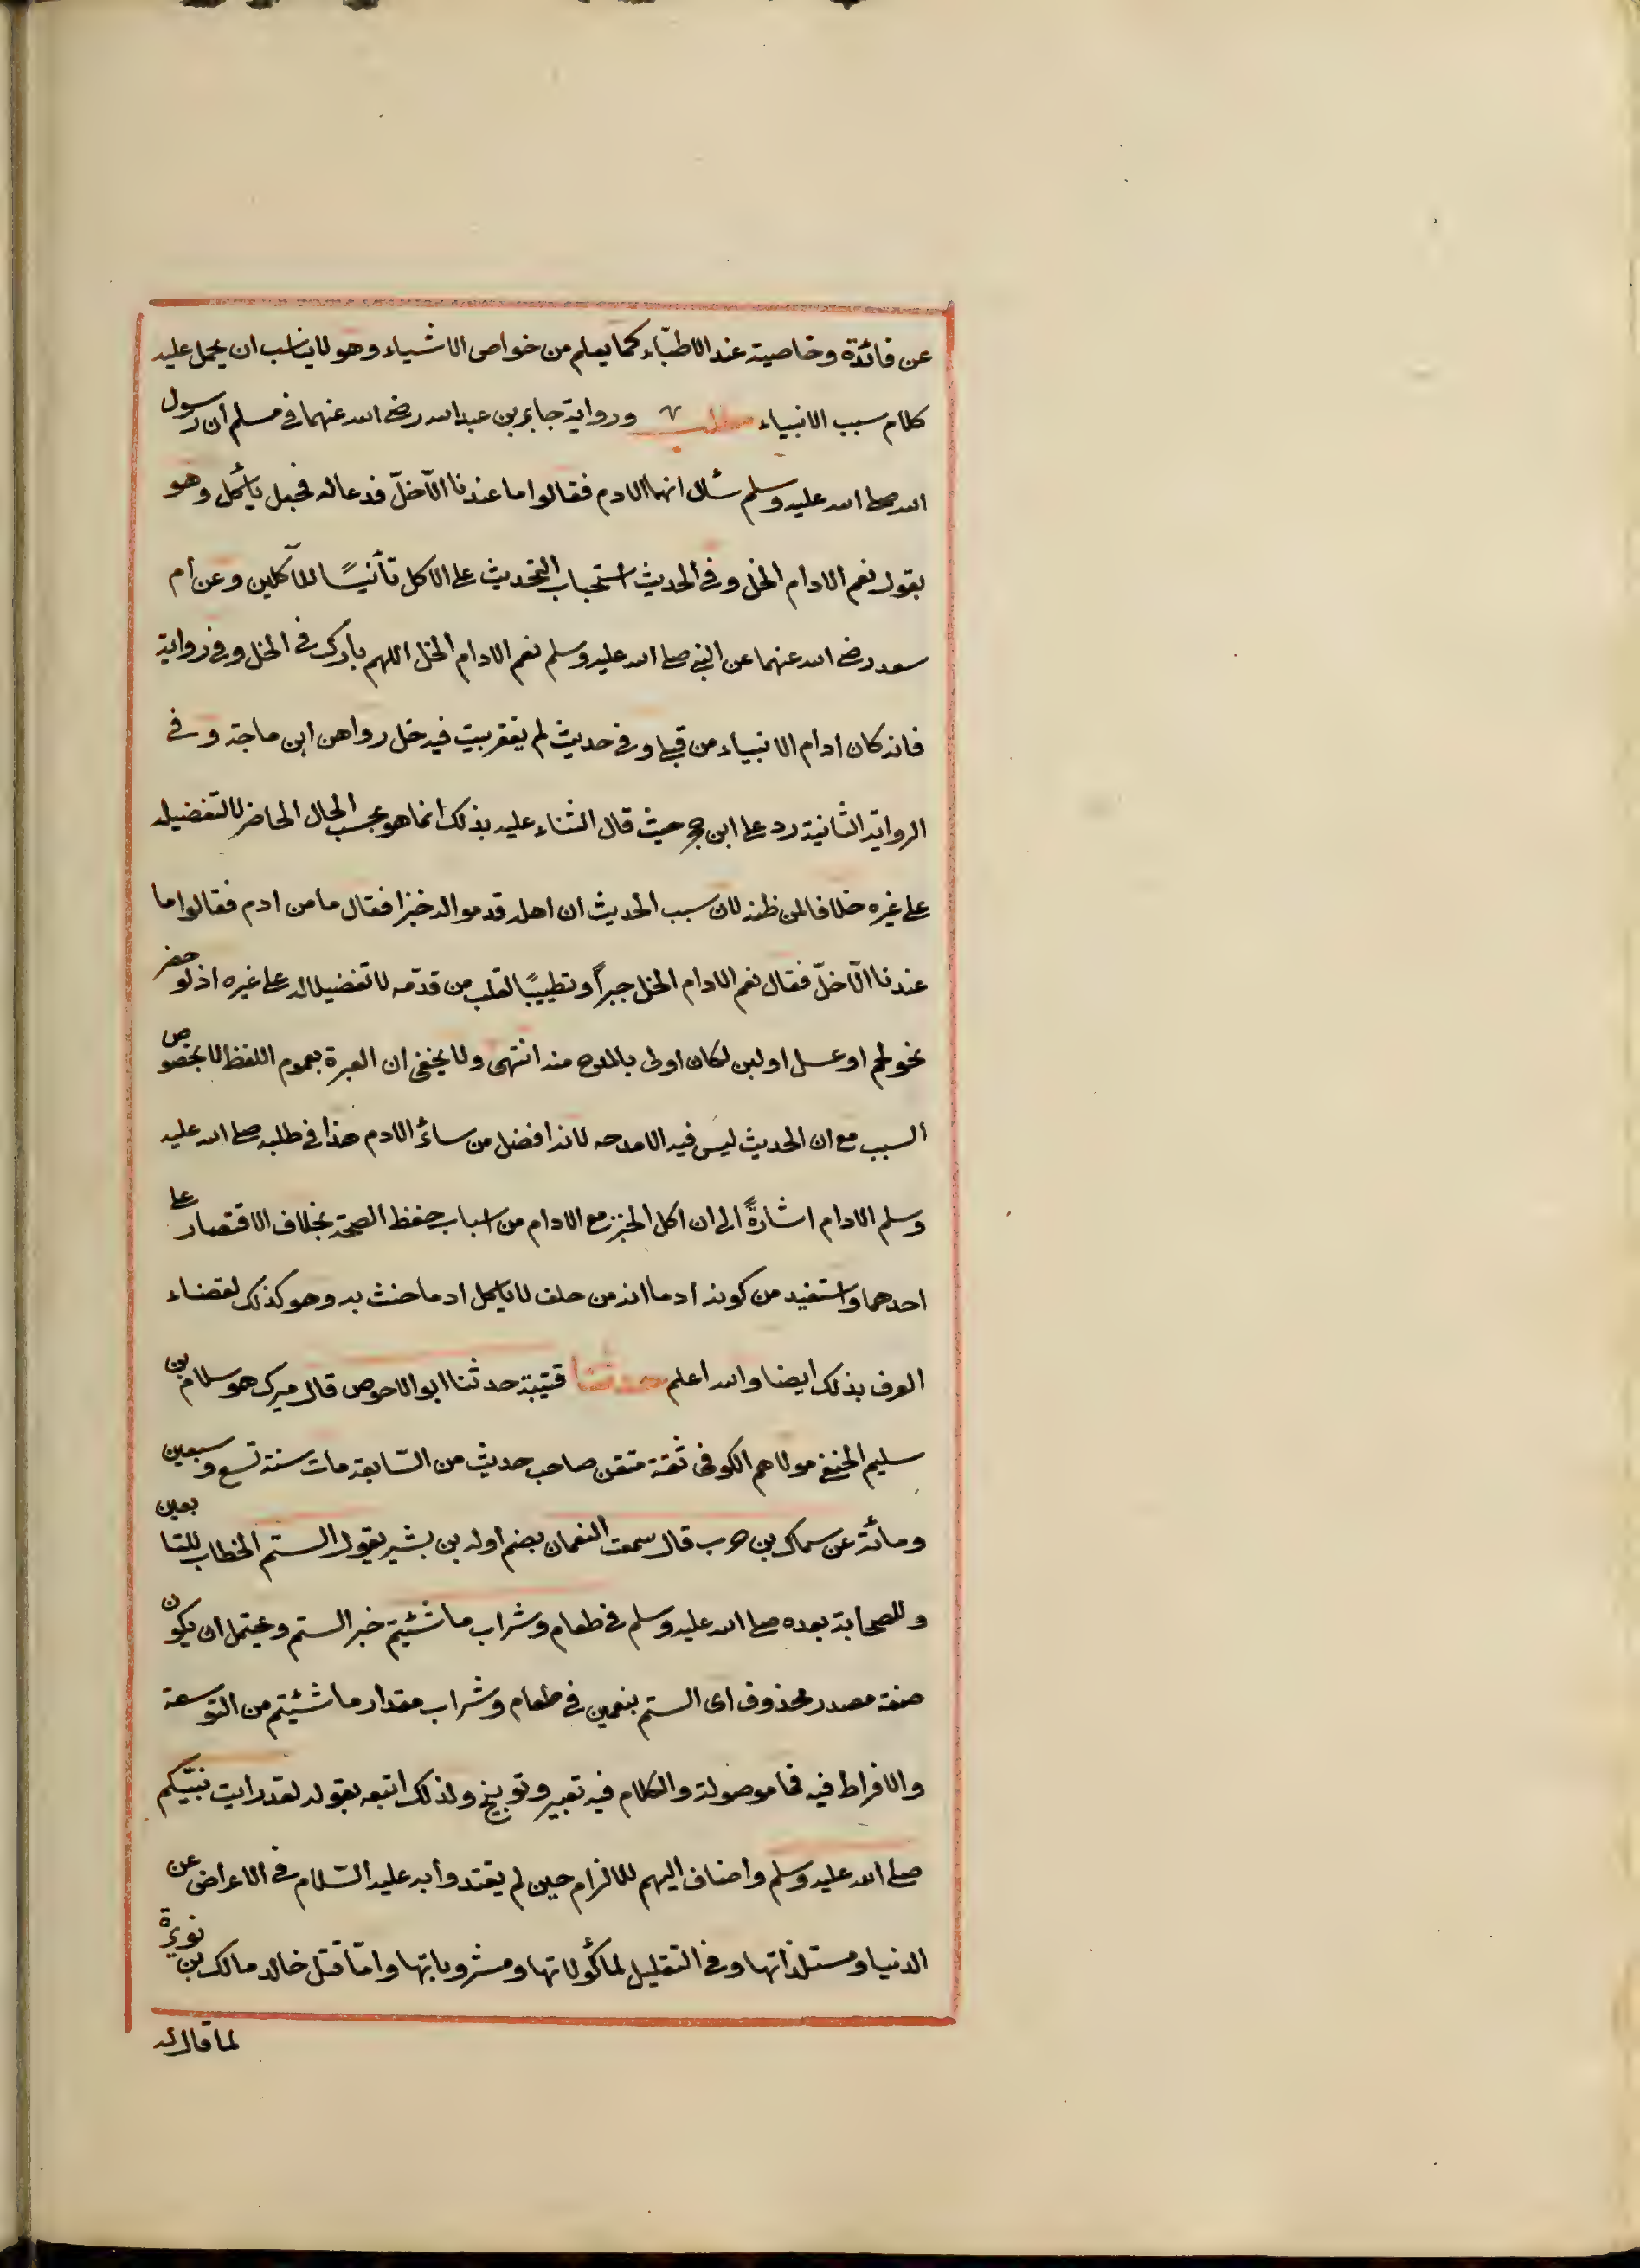 عن فائدة وخاصية عند الاطباء كما يعلم من خواص الاشياء وهو لا يناسب ان يحمل عليه
كلام سبب الانبياء ورواية جابر بن عبد الله رضي الله عنهما في مسلم أن رسول
الله صلى الله عليه وسلم سأل انها الادم فقالوا ما عندنا الّا خلّ فدعا له فجعل يأكل وهو
يقول نعم الادام الخل وفي الحديث استحباب التحديث على الاكل تأنيسًا للآكلين وعن أم
سعد رضي الله عنهما عن النبي صلى الله عليه وسلم نعم الادام الخل اللهم بارك في الخل وفي رواية
فانه كان ادام الانبياء من قبلي وفي حديث لم يفقر بيت فيه خل رواهن ابن ماجة وفي
الرواية الثانية رد على ابن حجر حيث قال الثناء عليه بذلك انما هو بحسب الحال الحاضر لا لتفضيله
على غيره خلافا لمن ظنه لان سبب الحديث ان اهله قدموا له خبزا فقال ما من ادم فقالوا ما
عندنا الّا خلّ فقال نعم الادام الخل جبراً وتطييبًا لقلب من قدّمه لا تفضيلا له على غيره اذ لو حضر
نحو لحم او عسل او لبن لكان اولى بالمدح منه انتهى ولا يخفى ان العبرة بعموم اللفظ لا بخصوص
السبب مع ان الحديث ليس فيه الا مدحه لا انه افضل من سائر الادم هذا في طلبه صلى الله عليه
وسلم الادام اشارةً الى ان اكل الخبز مع الادام من اسباب حفظ الصحة بخلاف الاقتصار على
احدهما واستفيد من كونه ادما انه من حلف لا ياكل ادما حنث به وهو كذلك لقضاء
العرف بذلك ايضا والله اعلم حدثنا قتيبة حدثنا ابو الاحوص قال ميرك هو سلام بن
سليم الحنفي مولاهم الكوفي ثقة متقن صاحب حديث من السّابعة مات سنة تسع وسبعين
ومائة عن سماك بن حرب قال سمعت النعمان بضم اوله بن بشير يقول الستم الخطاب للتابعين
وللصحابة بعده صلى الله عليه وسلم في طعام وشراب ما شئيتم خبر الستم ويحتمل ان يكون
صفة مصدر محذوف اى الستم بنعمين في طعام وشراب مقدار ما شئيتم من التوسعة
والافراط فيه فما موصولة والكلام فيه تعبير وتوبيخ ولذلك اتبعه بقوله لقد رايت نبيّكم
صلى الله عليه وسلم واضاف اليهم للالزام حين لم يقتدوا به عليه السّلام في الاعراض عن
الدنيا ومستلذاتها وفي التقليل لمأكولاتها ومشروباتها وامّا قتل خالد مالك بن نويرة
لما قال له